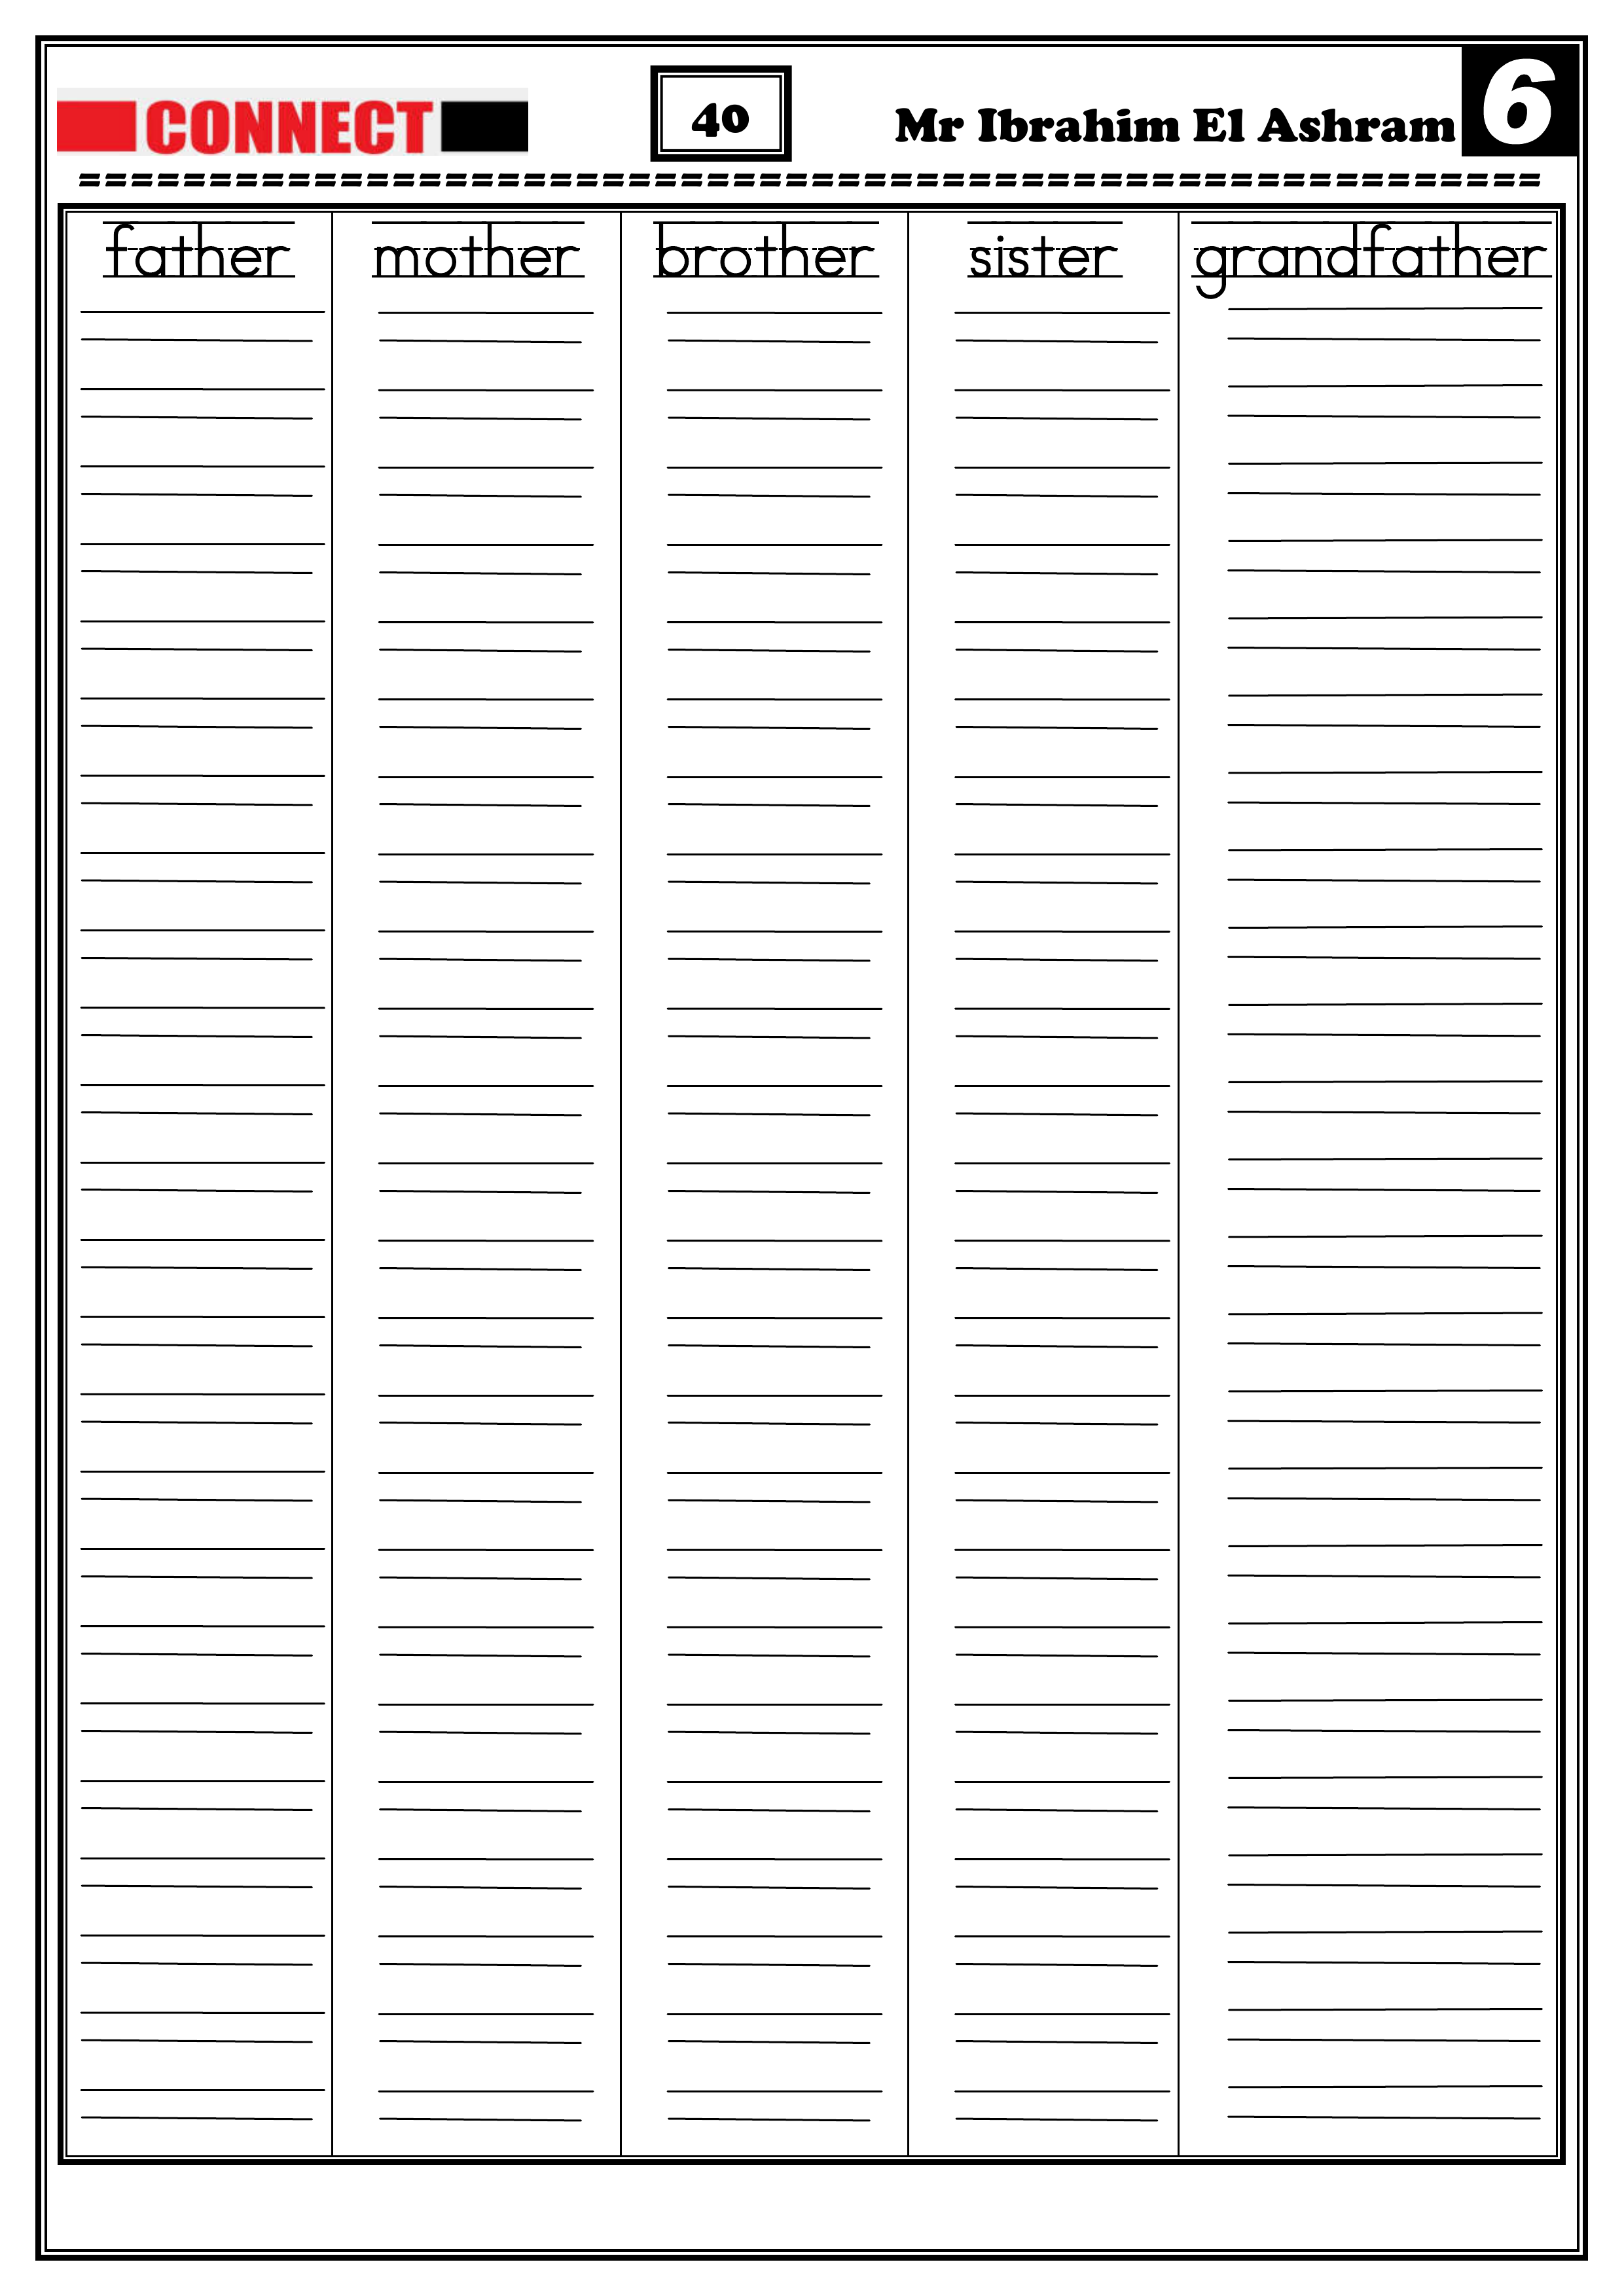 CONNECT 40 Mr Ibrahim El Ashram 6
==========================================================
father mother brother sister grandfather